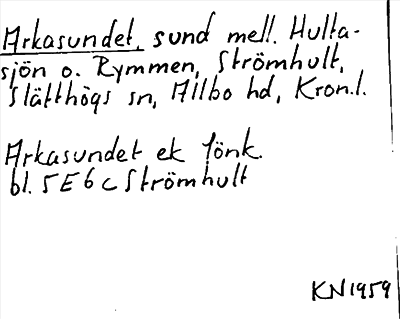 Arkasundet, sund mell. Hulta-
sjön o. Rymmen, Strömhult,
Slätthögs sn, Allbo hd, Kron.l.
Arkasundet ek Jönk.
bl. 5E6c Strömhult
KN1959